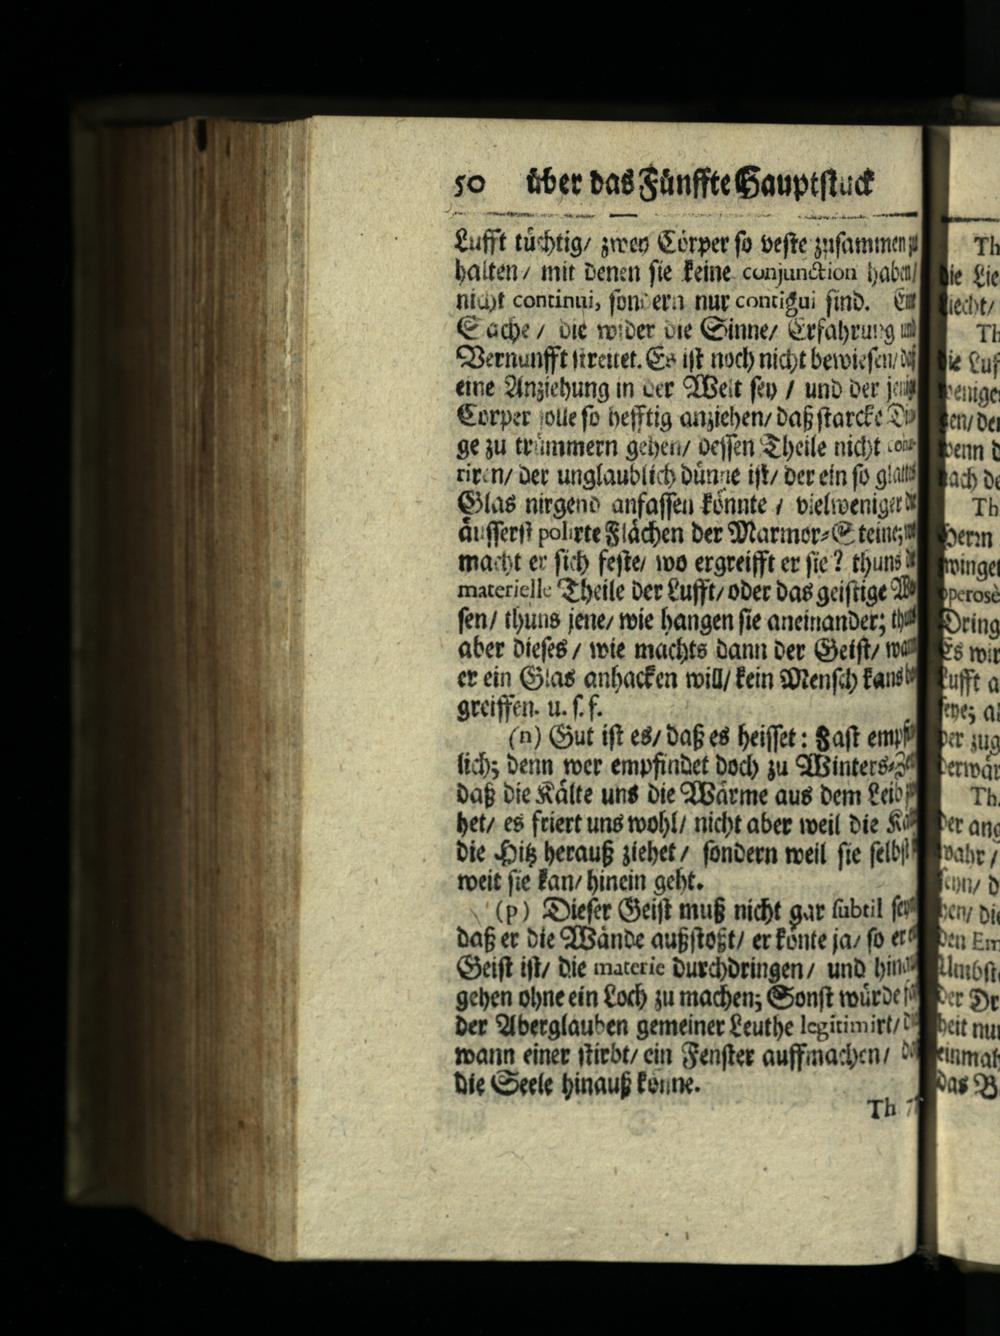 50 über das Fünffte Hauptstuck
Lufft tüchtig/ zween Cörper so veste zusammen
halten/ mit denen sie keine conjunction haben/
nicht continui, sondern nur contigui sind. Eine
Sache/ die wider die Sinne/ Erfahrung und
Vernunfft streitet. Es ist noch nicht bewiesen/ daß
eine Anziehung in der Welt sey / und der jenige
Cörper solle so hefftig anziehen/ daß starcke Din-
ge zu trümmern gehen/ dessen Theile nicht cohæ-
riren/ der unglaublich dünne ist/ der ein so glattes
Glas nirgend anfassen könnte / vielweniger die
äusserst polirte Flächen der Marmor-Steine;
macht er sich feste/ wo ergreifft er sie? thuns die
materielle Theile der Lufft/ oder das geistige We-
sen/ thuns jene/ wie hangen sie aneinander; thuts
aber dieses / wie machts dann der Geist/ wann
er ein Glas anhacken will/ kein Mensch kans be-
greiffen. u. s. f.
(n) Gut ist es/ daß es heisset: Fast empfind-
lich; denn wer empfindet doch zu Winters-Zeit
daß die Kälte uns die Wärme aus dem Leib zie-
het/ es friert uns wohl/ nicht aber weil die Kälte
die Hitz herauß ziehet/ sondern weil sie selbst
weit sie kan/ hinein geht.
(p) Dieser Geist muß nicht gar subtil seyn
daß er die Wände außstoßt/ er könte ja/ so er ein
Geist ist/ die materie durchdringen/ und hinauß
gehen ohne ein Loch zu machen; Sonst würde
der Aberglauben gemeiner Leuthe legitimirt/
wann einer stirbt/ ein Fenster auffmachen/ daß
die Seele hinauß könne.
Th